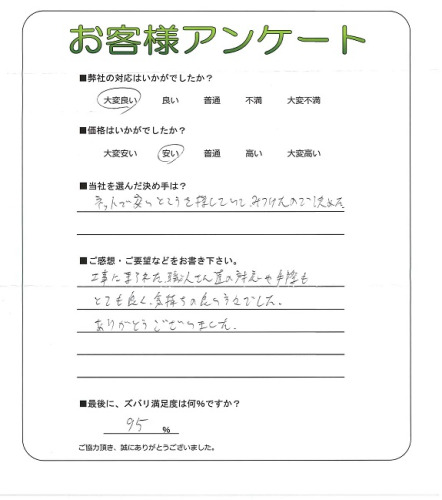 お客様アンケート
■弊社の対応はいかがでしたか？
大変良い 良い 普通 不満 大変不満
■価格はいかがでしたか？
大変安い 安い 普通 高い 大変高い
■当社を選んだ決め手は？
ネットで安いところを探していて、みつけたので決めた
■ご感想・ご要望などをお書き下さい。
工事に来られた、職人さん達の対応や手際も
とても良く、気持ちの良い方々でした。
ありがとうございました。
■最後に、ズバリ満足度は何％ですか？
95 %
ご協力頂き、誠にありがとうございました。